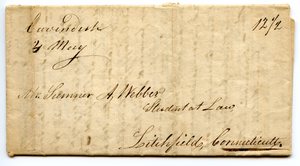 Cavendish
4 May
12 1/2
Mr. Sumner A. Webber
Student at Law
Litchfield, Connecticutt